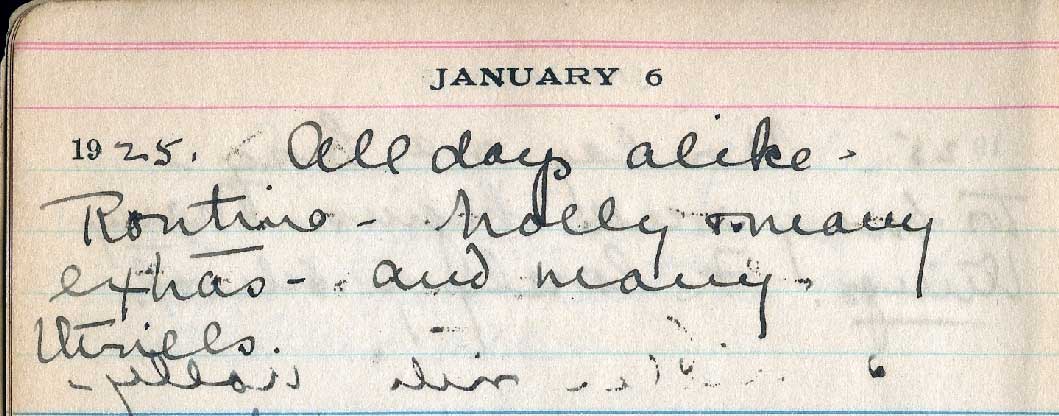 JANUARY 6
1925. All days alike -
Routine - Molly & many
extras - and many
thrills.